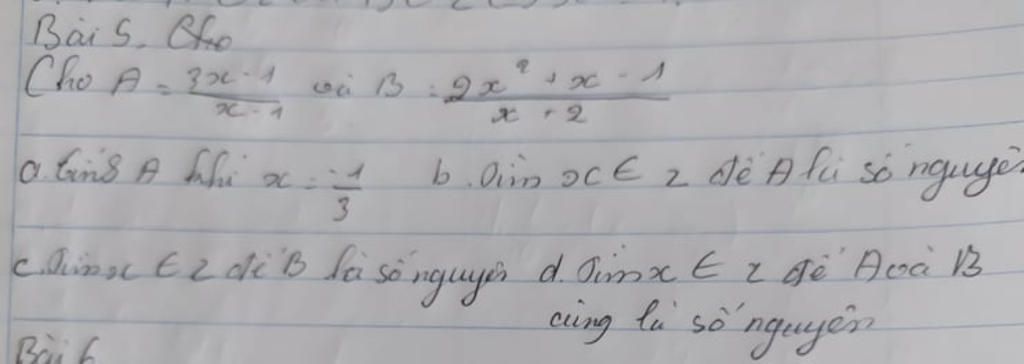 Bài 5. Cho
Cho A = \frac{3x-1}{x-1} và B = \frac{2x^2+x-1}{x+2}
a. Tính A khi x = \frac{-1}{3} b. Tìm x ∈ Z để A là số nguyên
c. Tìm x ∈ Z để B là số nguyên d. Tìm x ∈ Z để A và B
cùng là số nguyên
Bài 6